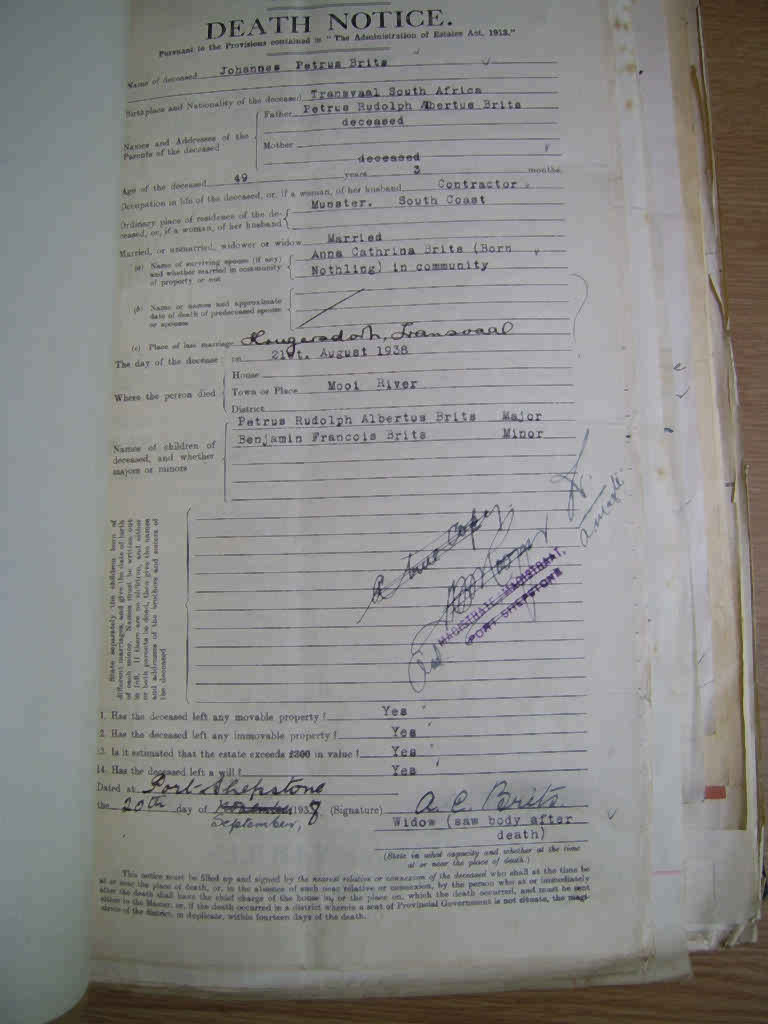 DEATH NOTICE.
Pursuant to the Provisions contained in "The Administration of Estates Act, 1913."
Name of deceased Johannes Petrus Brits
Birthplace and Nationality of the deceased Transvaal South Africa
Names and Addresses of the Parents of the deceased
Father Petrus Rudolph Albertus Brits
deceased
Mother
deceased
Age of the deceased 49 years 3 months.
Occupation in life of the deceased, or, if a woman, of her husband Contractor.
Ordinary place of residence of the deceased, or, if a woman, of her husband Munster. South Coast
Married, or unmarried, widower or widow Married
(a) Name of surviving spouse (if any) and whether married in community of property or not
Anna Cathrina Brits (Born
Nothling) in community
(b) Name or names and approximate date of death of predeceased spouse or spouses
(c) Place of last marriage Krugersdorh, Transvaal
The day of the decease: on 21st. August 1938
Where the person died
House
Town or Place Mooi River
District
Names of children of deceased, and whether majors or minors
Petrus Rudolph Albertus Brits Major
Benjamin Francois Brits Minor
State separately the children born of
different marriages, and give the date of birth
of each minor. Names must be written out
in full. If there are no children, and either
or both parents be dead, then give the names
and addresses of the brothers and sisters of
the deceased
A true Copy
MAGISTRATE, MAGISTRAAT,
PORT SHEPSTONE
1. Has the deceased left any movable property? Yes
2. Has the deceased left any immovable property? Yes
3. Is it estimated that the estate exceeds £300 in value? Yes
14. Has the deceased left a will? Yes
Dated at Port Shepstone
the 20th day of 1938 (Signature) A. C. Brits.
September,
Widow (saw body after
death)
(State in what capacity and whether at the time
at or near the place of death.)
This notice must be filled up and signed by the nearest relative or connexion of the deceased who shall at the time be
at or near the place of death, or, in the absence of such near relative or connexion, by the person who at or immediately
after the death shall have the chief charge of the house in, or the place on, which the death occurred, and must be sent
either to the Master, or, if the death occurred in a district wherein a seat of Provincial Government is not situate, the magi-
strate of the district, in duplicate, within fourteen days of the death.